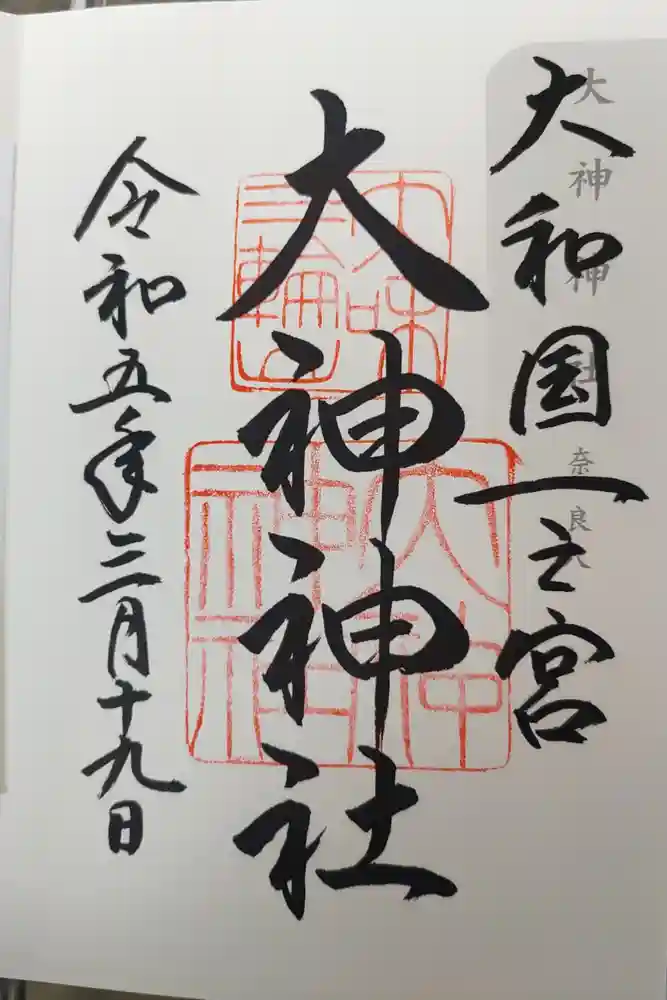 大神神社 奈良
大和国一之宮
大神神社
大神神社
令和五年三月十九日